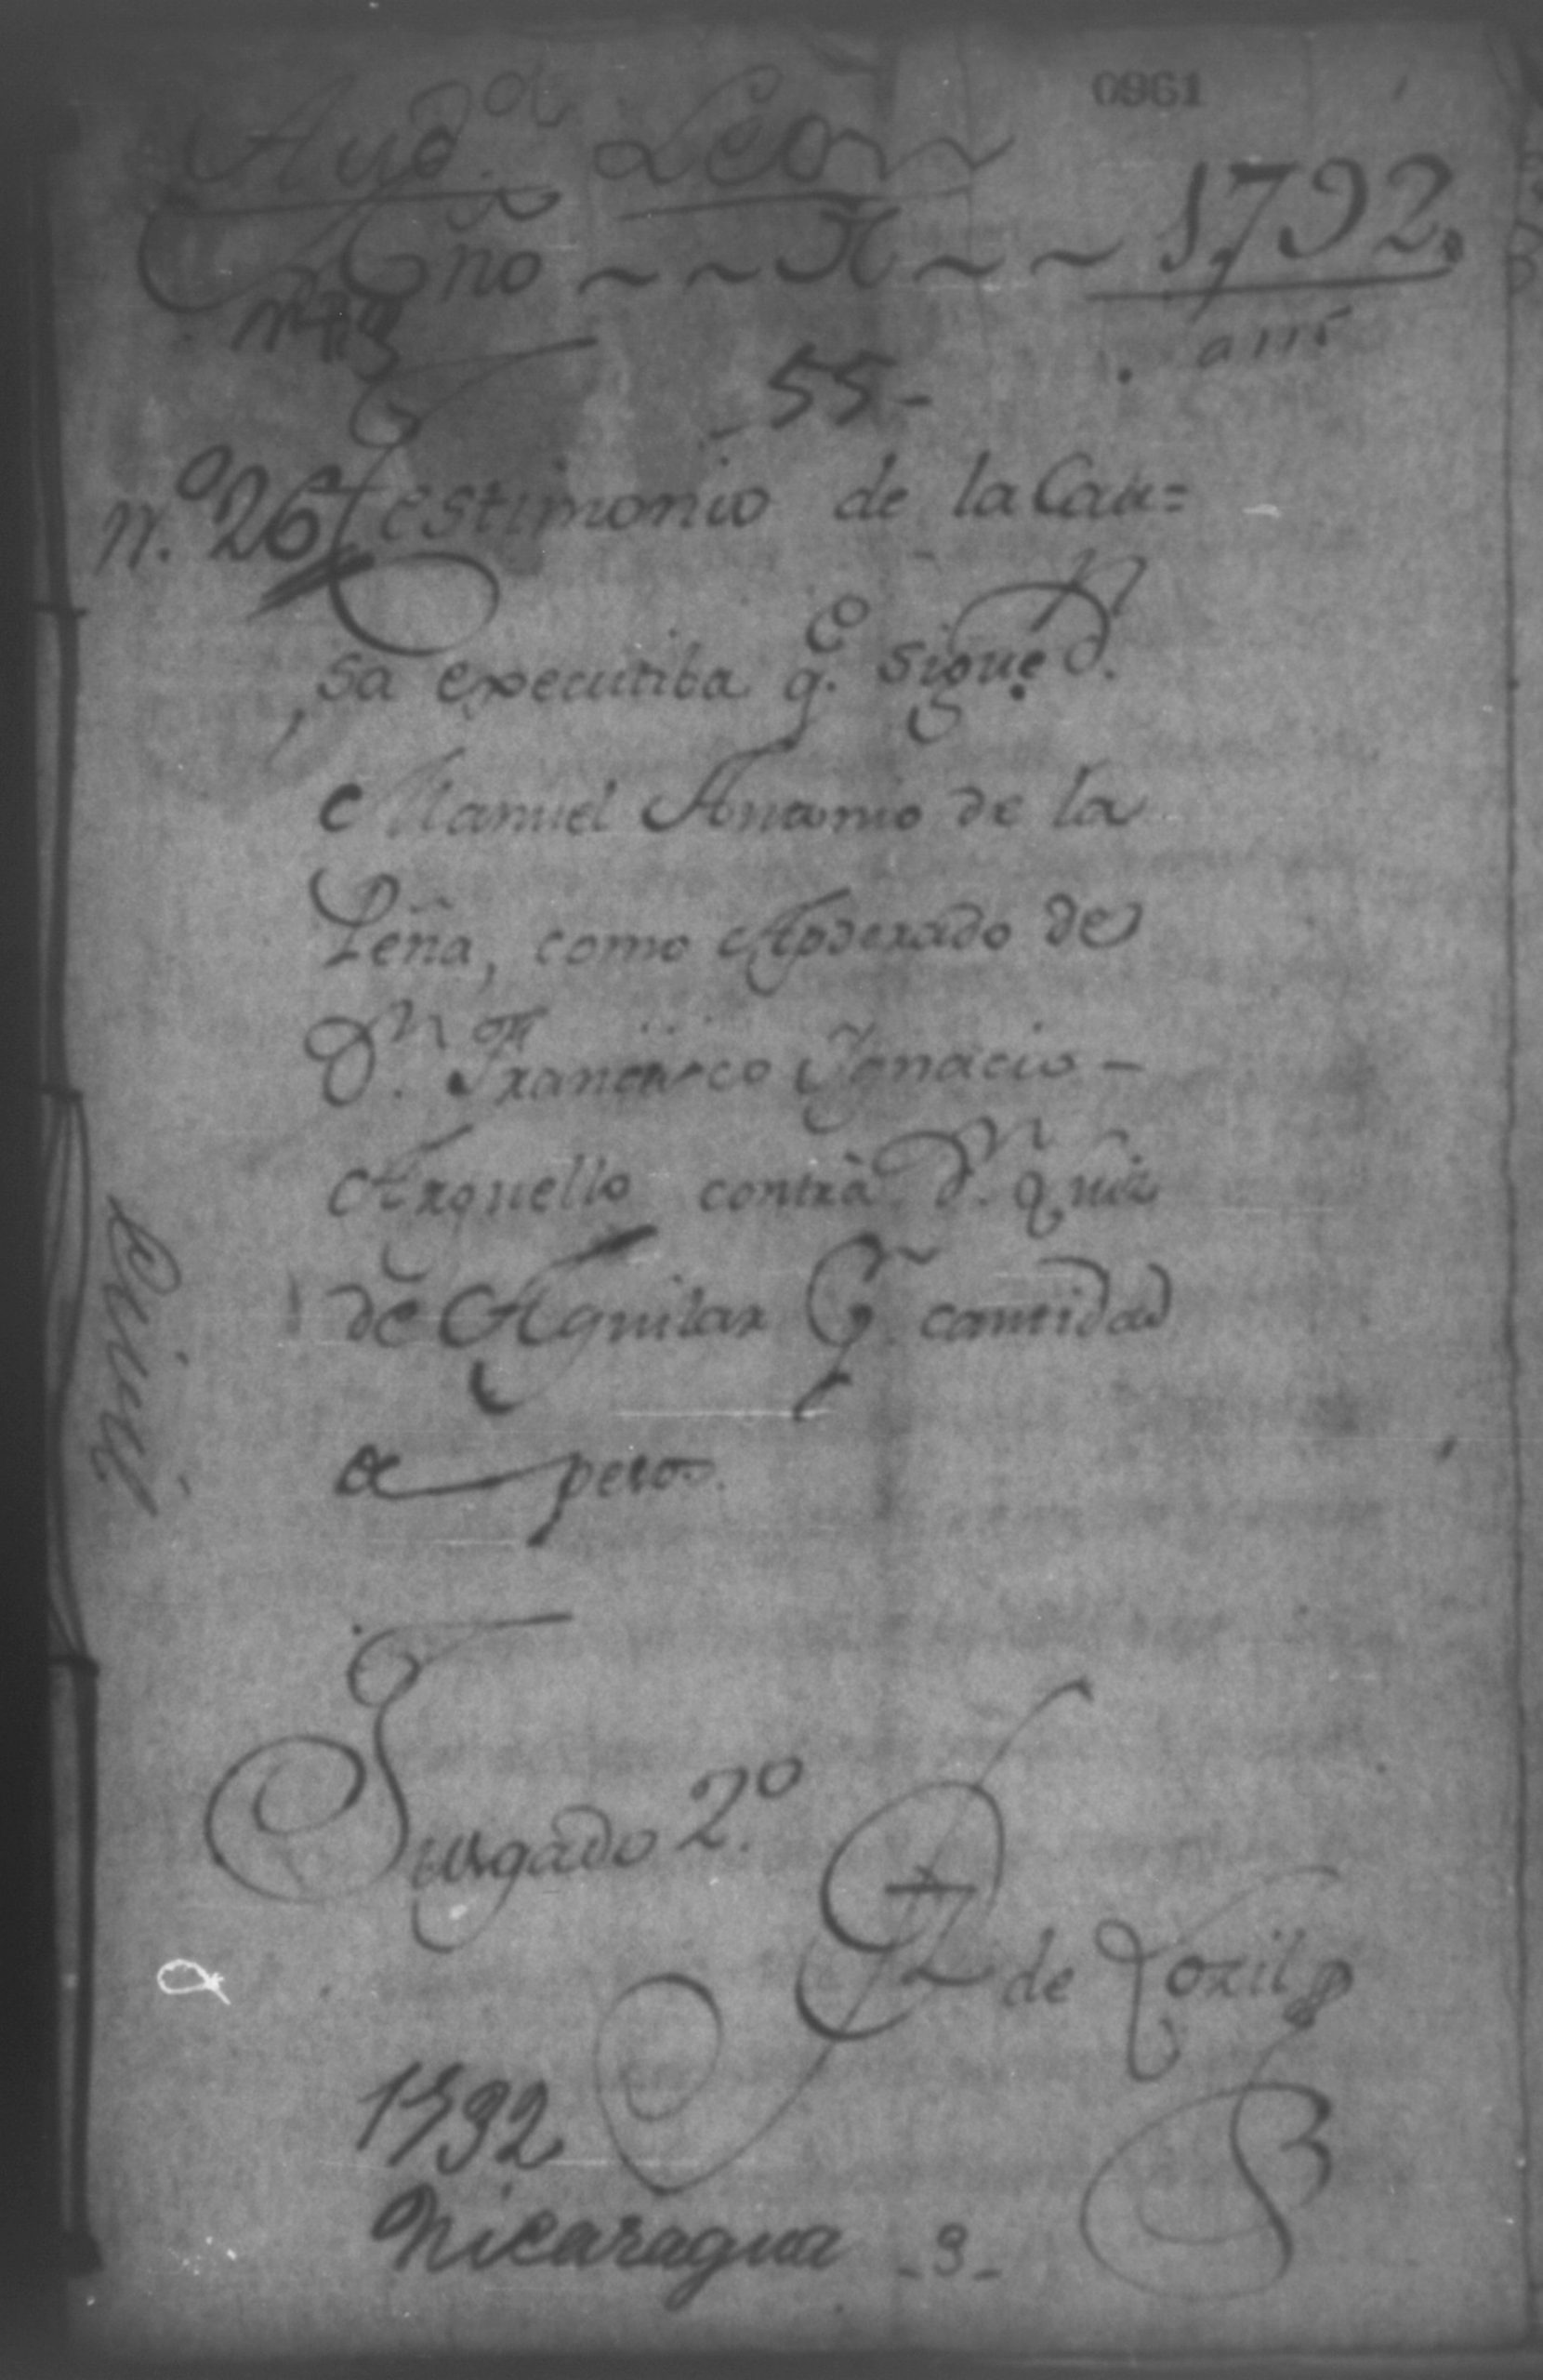 0961
Aud.a Leon
Año ~ ~ de ~ ~ 1792.
55-
N.o 26 Testimonio de la Cau=
sa executiba q.e sigue D.n
Manuel Antonio de la
Peña, como Apoderado de
D.n Francisco Ygnacio -
Arguello contra D.n
de Aguilar cantidad
de pesos.
Civil
Jusgado 2.o
de
1792
Nicaragua - 9 -